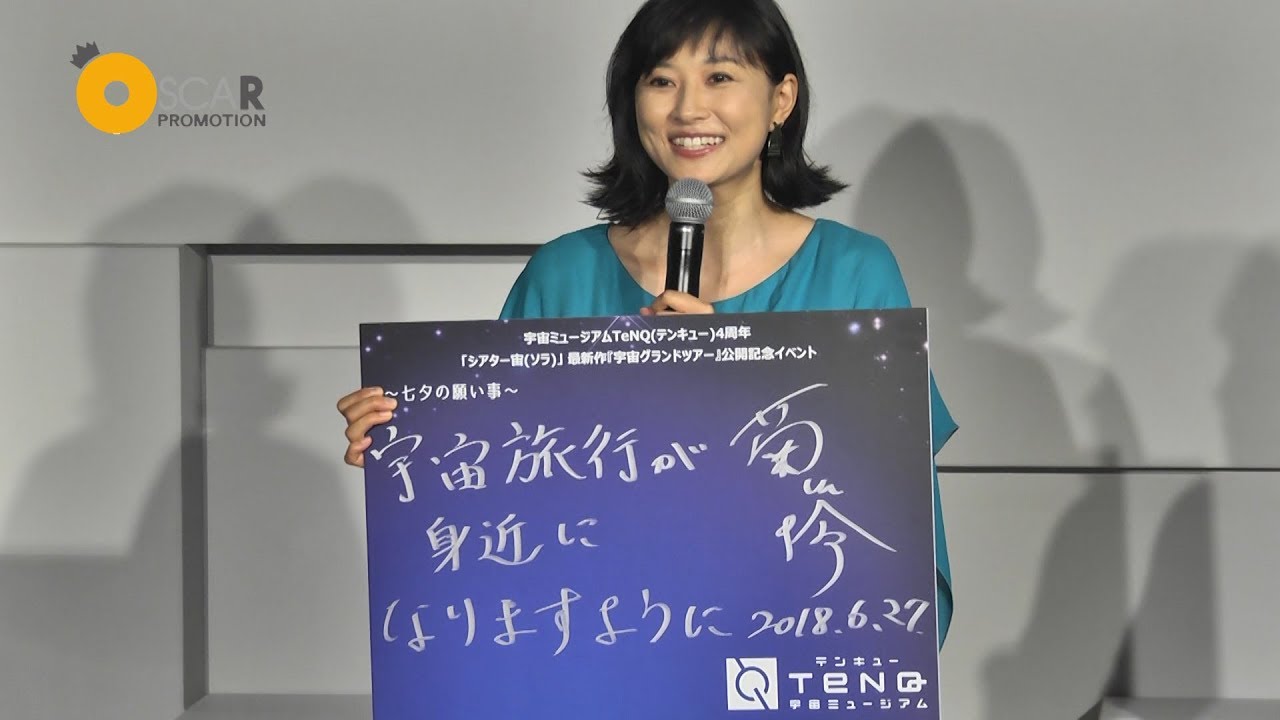 OSCAR
PROMOTION
宇宙ミュージアムTeNQ(テンキュー)4周年
「シアター宙(ソラ)」最新作『宇宙グランドツアー』公開記念イベント
~七夕の願い事~
宇宙旅行が
身近に
なりますように
菊川怜
2018.6.27.
テンキュー
TeNQ
宇宙ミュージアム